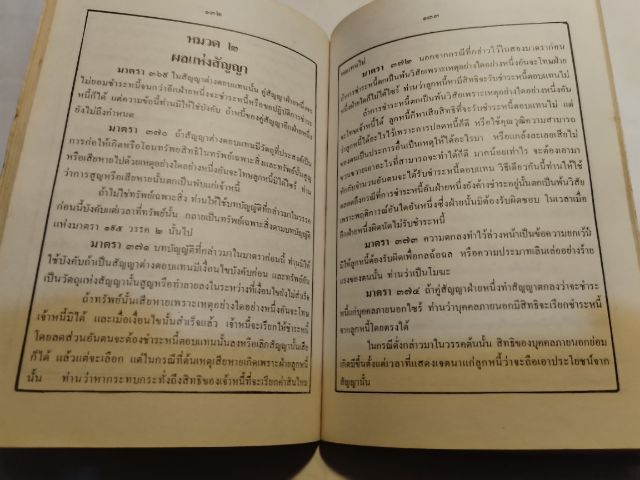 ๑๓๒
หมวด ๒
ผลแห่งสัญญา
มาตรา ๓๖๙ ในสัญญาต่างตอบแทนนั้น คู่สัญญาฝ่ายหนึ่งจะ
ไม่ยอมชำระหนี้จนกว่าอีกฝ่ายหนึ่งจะชำระหนี้หรือขอปฏิบัติการชำระ
หนี้ก็ได้ แต่ความข้อนี้ท่านมิให้ใช้บังคับ ถ้าหนี้ของคู่สัญญาอีกฝ่ายหนึ่ง
ยังไม่ถึงกำหนด
มาตรา ๓๗๐ ถ้าสัญญาต่างตอบแทนมีวัตถุที่ประสงค์เป็น
การก่อให้เกิดหรือโอนทรัพยสิทธิในทรัพย์เฉพาะสิ่งและทรัพย์นั้นสูญ
หรือเสียหายไปด้วยเหตุอย่างใดอย่างหนึ่งอันจะโทษลูกหนี้มิได้ไซร้ ท่าน
ว่าการสูญหรือเสียหายนั้นตกเป็นพับแก่เจ้าหนี้
ถ้าไม่ใช่ทรัพย์เฉพาะสิ่ง ท่านให้ใช้บทบัญญัติที่กล่าวมาในวรรค
ก่อนนี้บังคับแต่เวลาที่ทรัพย์นั้น กลายเป็นทรัพย์เฉพาะสิ่งตามบทบัญญัติ
แห่งมาตรา ๑๙๕ วรรค ๒ นั้นไป
มาตรา ๓๗๑ บทบัญญัติที่กล่าวมาในมาตราก่อนนี้ ท่านมิให้
ใช้บังคับถ้าเป็นสัญญาต่างตอบแทนมีเงื่อนไขบังคับก่อน และทรัพย์อัน
เป็นวัตถุแห่งสัญญานั้นสูญหรือทำลายลงในระหว่างที่เงื่อนไขยังไม่สำเร็จ
ถ้าทรัพย์นั้นเสียหายเพราะเหตุอย่างใดอย่างหนึ่งอันจะโทษ
เจ้าหนี้มิได้ และเมื่อเงื่อนไขนั้นสำเร็จแล้ว เจ้าหนี้จะเรียกให้ชำระหนี้
โดยลดส่วนอันตนจะต้องชำระหนี้ตอบแทนนั้นลงหรือเลิกสัญญานั้นเสีย
ก็ได้ แล้วแต่จะเลือก แต่ในกรณีที่ต้นเหตุเสียหายเกิดเพราะฝ่ายลูกหนี้
นั้น ท่านว่าหากระทบกระทั่งถึงสิทธิของเจ้าหนี้ที่จะเรียกค่าสินไหม
๑๓๓
ทดแทนไม่
มาตรา ๓๗๒ นอกจากกรณีที่กล่าวไว้ในสองมาตราก่อน
ถ้าการชำระหนี้ตกเป็นพ้นวิสัยเพราะเหตุอย่างใดอย่างหนึ่งอันจะโทษฝ่าย
หนึ่งฝ่ายใดก็ไม่ได้ไซร้ ท่านว่าลูกหนี้หามีสิทธิจะรับชำระหนี้ตอบแทนไม่
ถ้าการชำระหนี้ตกเป็นพ้นวิสัยเพราะเหตุอย่างใดอย่างหนึ่งอัน
จะโทษเจ้าหนี้ได้ ลูกหนี้ก็หาเสียสิทธิที่จะรับชำระหนี้ตอบแทนไม่ แต่
ว่าลูกหนี้ได้อะไรไว้เพราะการปลดหนี้ก็ดี หรือใช้คุณวุฒิความสามารถ
ของตนเป็นประการอื่นเป็นเหตุให้ได้อะไรมา หรือแกล้งละเลยเสียไม่
ขวนขวายเอาอะไรที่สามารถจะทำได้ก็ดี มากน้อยเท่าไร จะต้องเอามา
หักกับจำนวนอันตนจะได้รับชำระหนี้ตอบแทน วิธีเดียวกันนี้ท่านให้ใช้
ตลอดถึงกรณีที่การชำระหนี้อันฝ่ายหนึ่งยังค้างชำระอยู่นั้นตกเป็นพ้นวิสัย
เพราะพฤติการณ์อันใดอันหนึ่งซึ่งฝ่ายนั้นมิต้องรับผิดชอบ ในเวลาเมื่อ
อีกฝ่ายหนึ่งผิดนัดไม่รับชำระหนี้
มาตรา ๓๗๓ ความตกลงทำไว้ล่วงหน้าเป็นข้อความยกเว้น
มิให้ลูกหนี้ต้องรับผิดเพื่อกลฉ้อฉล หรือความประมาทเลินเล่ออย่างร้าย
แรงของตนนั้น ท่านว่าเป็นโมฆะ
มาตรา ๓๗๔ ถ้าคู่สัญญาฝ่ายหนึ่งทำสัญญาตกลงว่าจะชำระ
หนี้แก่บุคคลภายนอกไซร้ ท่านว่าบุคคลภายนอกมีสิทธิจะเรียกชำระหนี้
จากลูกหนี้โดยตรงได้
ในกรณีดังกล่าวมาในวรรคต้นนั้น สิทธิของบุคคลภายนอกย่อม
เกิดมีขึ้นตั้งแต่เวลาที่แสดงเจตนาแก่ลูกหนี้ว่าจะถือเอาประโยชน์จาก
สัญญานั้น